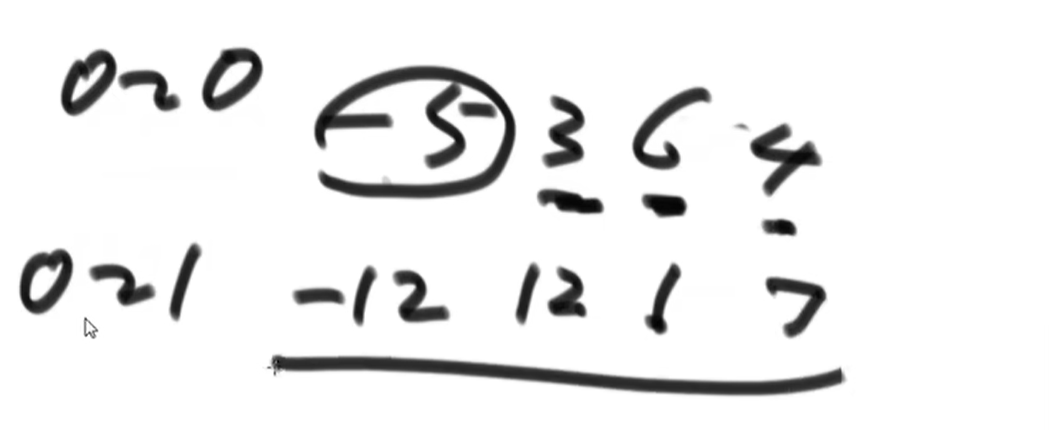 0~0 -5 3 6 4
0~1 -12 12 1 7